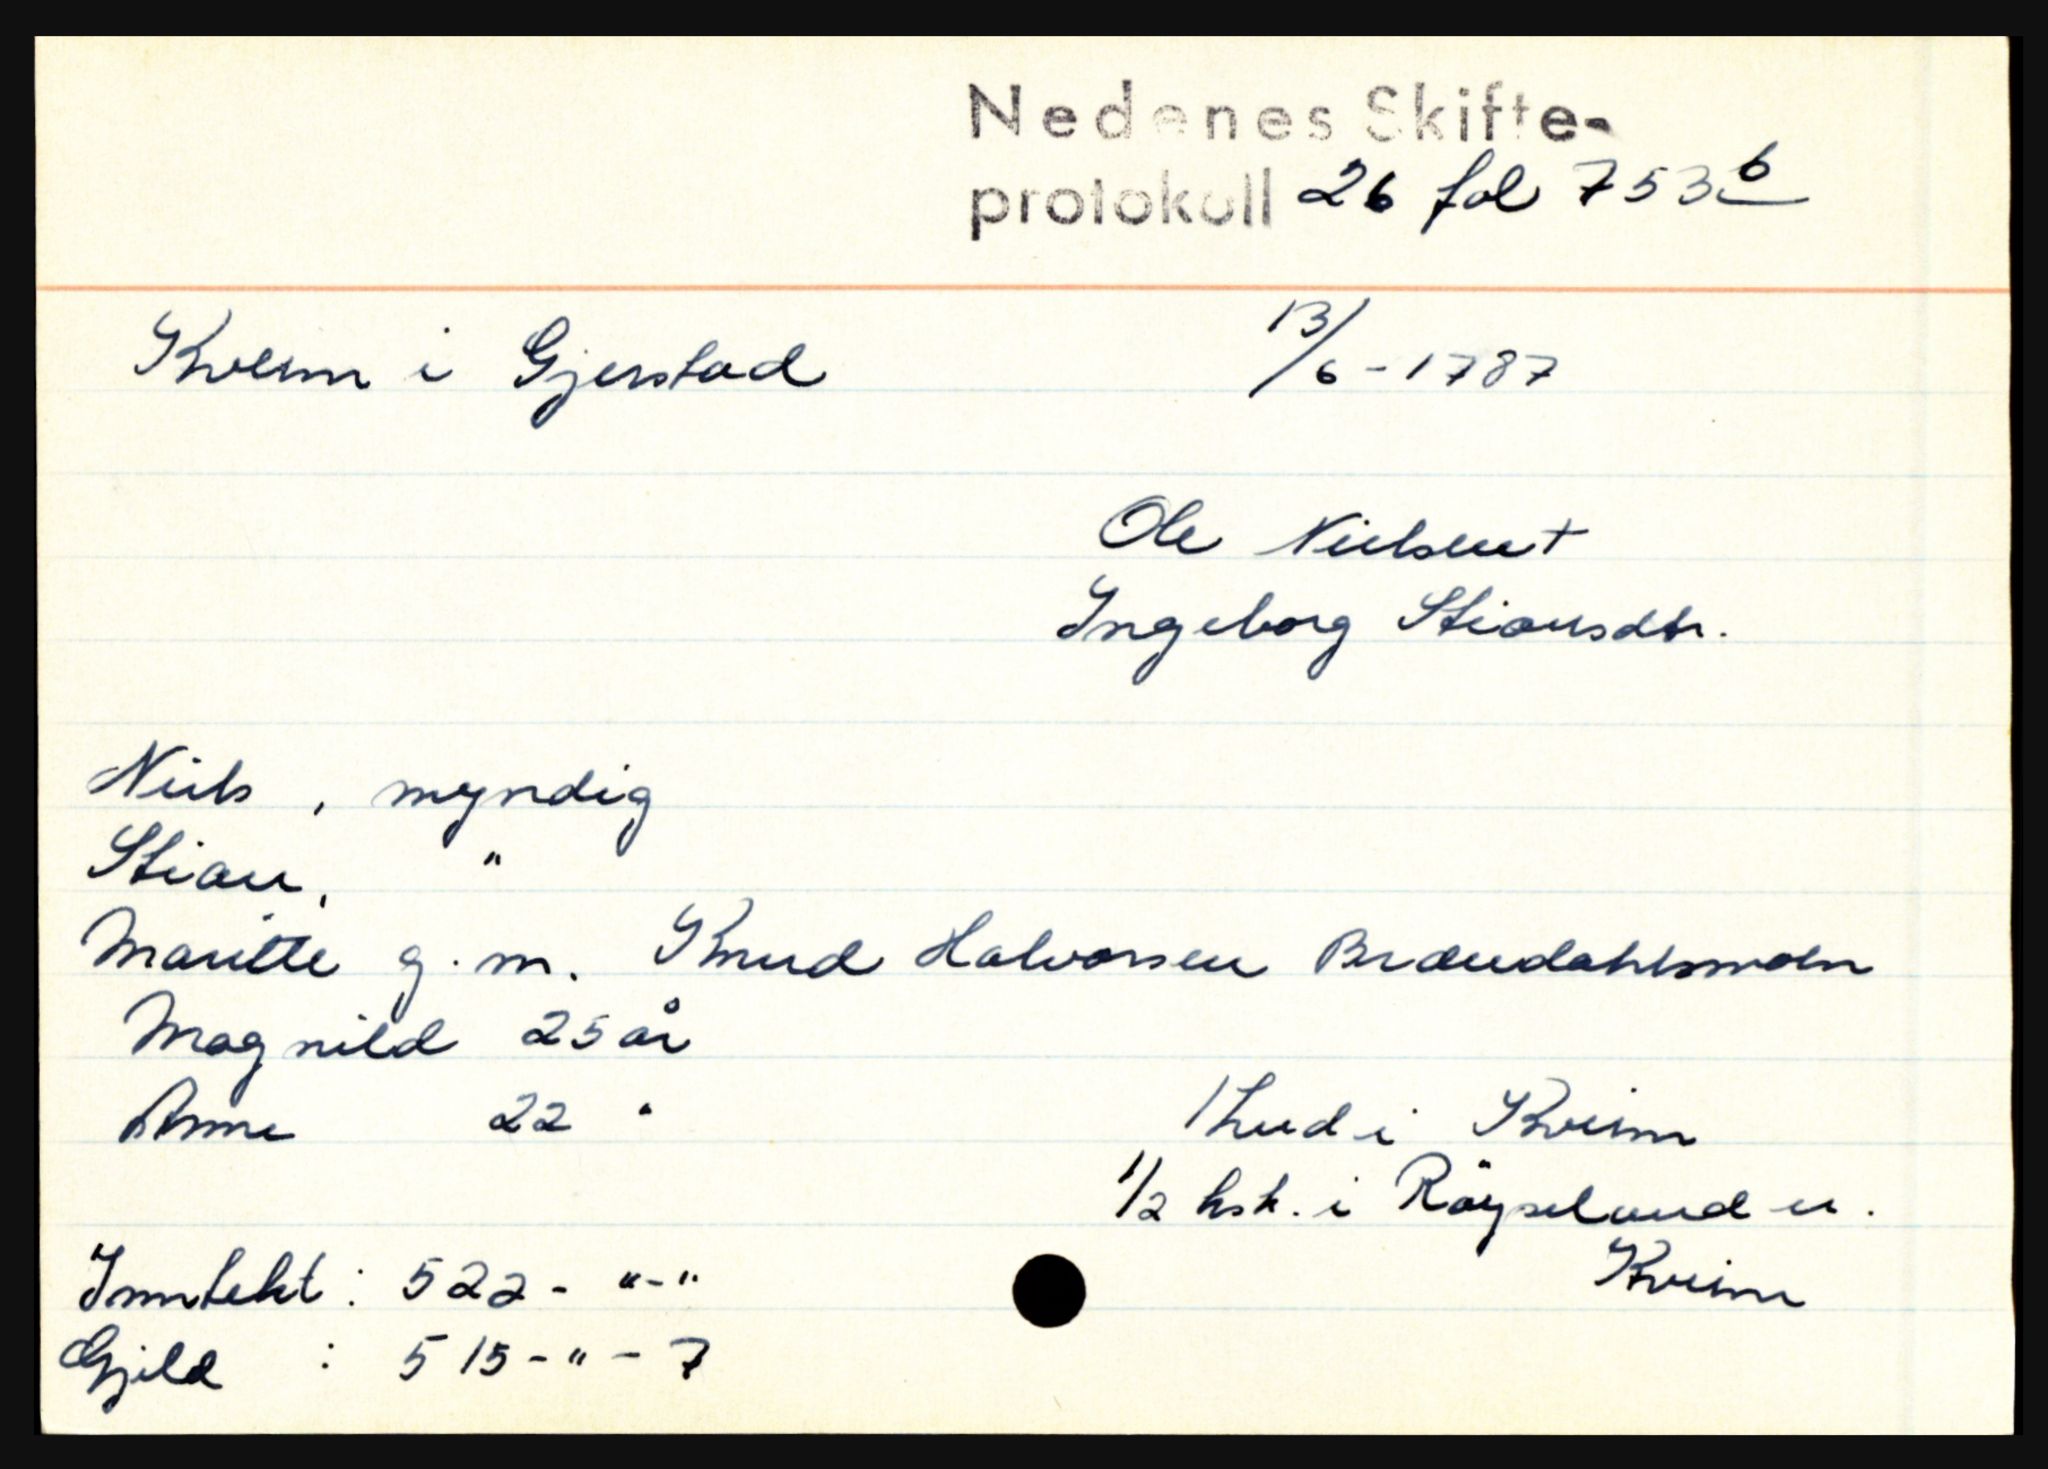 Nedenes Skifte-
protokoll 26 fol 753 b
Kveim i Gjerstad 13/6-1787
Ole Nielsen +
Ingeborg Stiansdtr.
Niels, myndig
Stian, "
Maritte g.m. Knud Halvorsen
Magnild 25 år
Anne 22 "
1 hud i Kveim
1/2 hsk. i Röyseland u.
Kveim
Inntekt: 522-"-"
Gjeld : 515-"-7